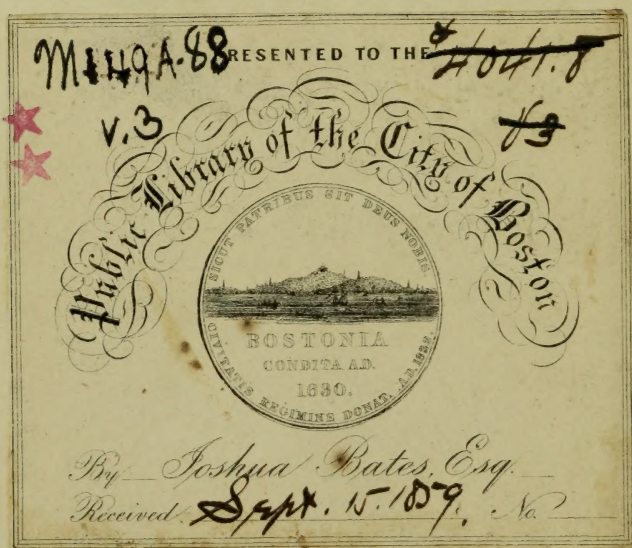 M149A.88
PRESENTED TO THE
4041.8
v.3
v3
Public Library of the City of Boston
SICUT PATRIBUS SIT DEUS NOBIS.
BOSTONIA
CONDITA A.D.
1630.
CIVITATIS REGIMINE DONAT. A.D. 1822.
By Joshua Bates, Esq.
Received Sept. 15. 1859. No.